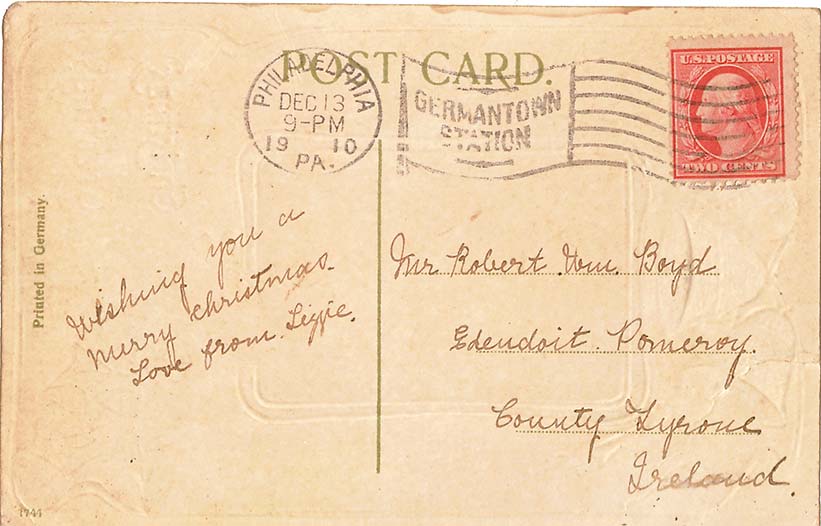 POST CARD.
PHILADELPHIA
DEC 13
9-PM
1910
PA.
GERMANTOWN
STATION
U.S. POSTAGE
TWO CENTS
Printed in Germany.
Wishing you a
merry christmas.
Love from Lizzie.
Mr Robert Wm. Boyd
Edendoit. Pomeroy.
County Tyrone
Ireland.
1744